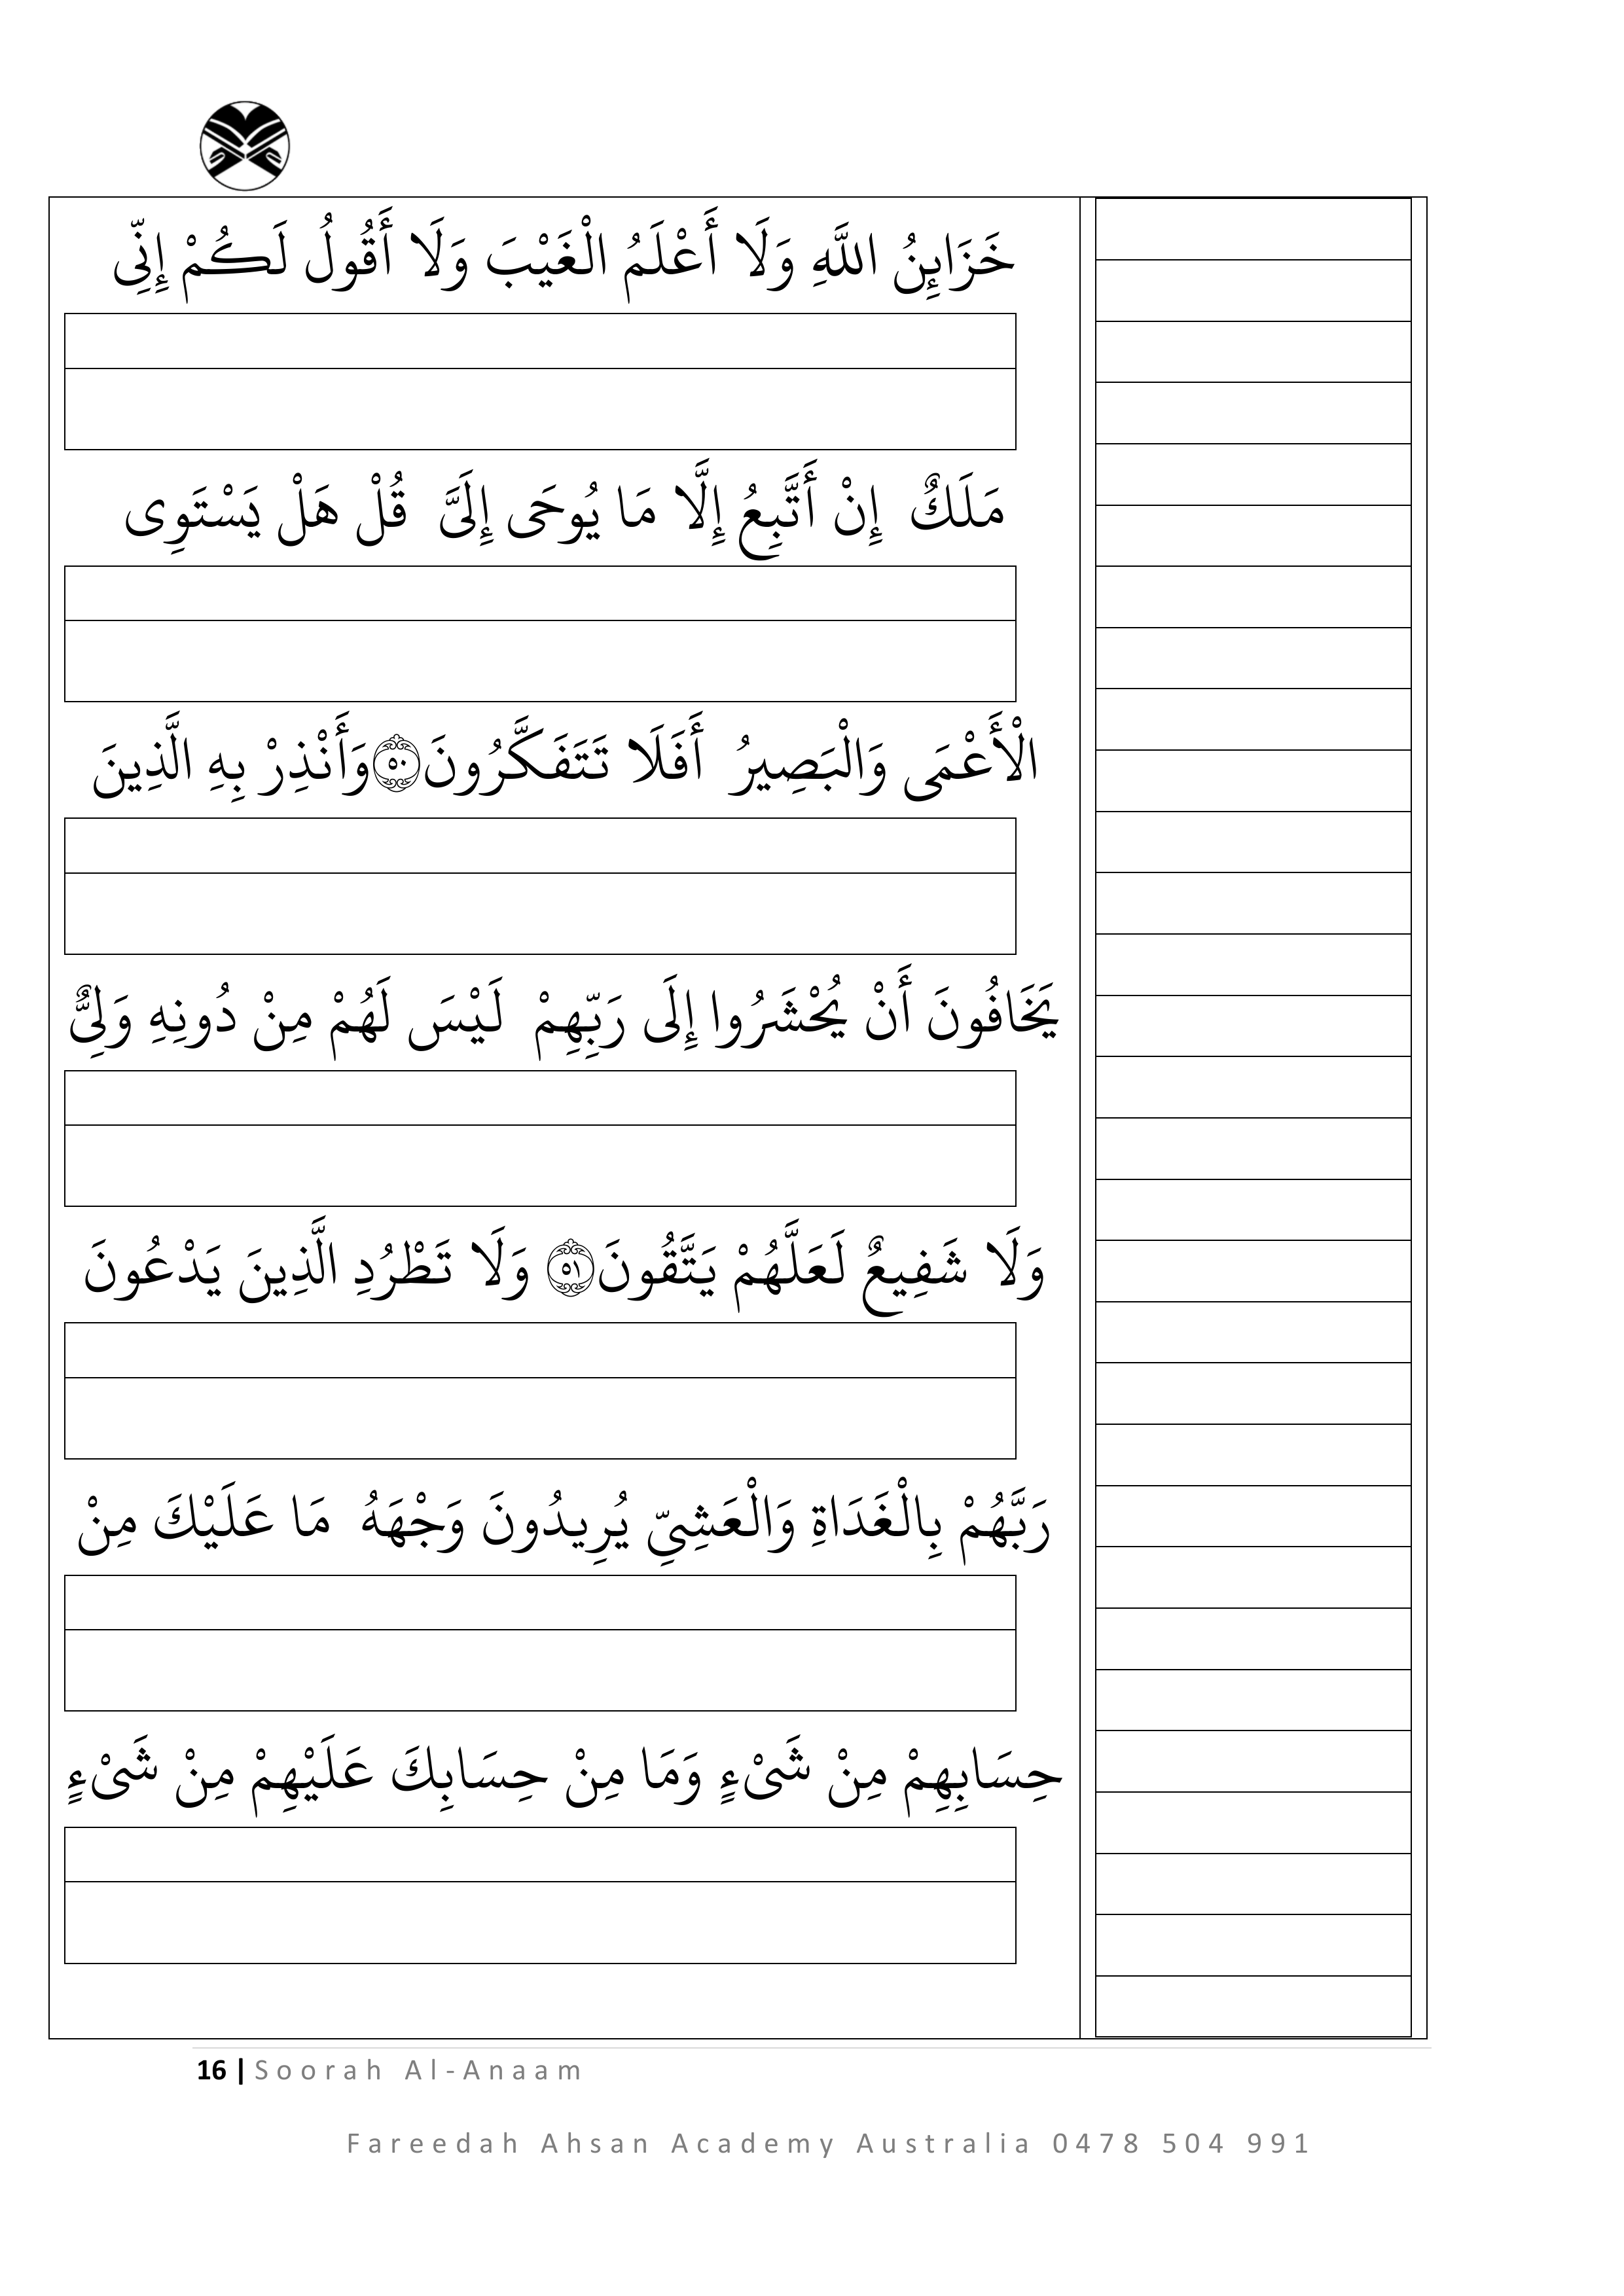 خَزَايِنُ اللَّهِ وَلَا أَعْلَمُ الْغَيْبَ وَلَا أَقُولُ لَكُمْ إِنِّى
مَلَكٌ إِنْ أَتَّبِعُ إِلَّا مَا يُوحَى إِلَىَّ قُلْ هَلْ يَسْتَوِى
الْأَعْمَى وَالْبَصِيرُ أَفَلَا تَتَفَكَّرُونَ ۝٥٠ وَأَنْذِرْ بِهِ الَّذِينَ
يَخَافُونَ أَنْ يُحْشَرُوا إِلَى رَبِّهِمْ لَيْسَ لَهُمْ مِنْ دُونِهِ وَلِىٌّ
وَلَا شَفِيعٌ لَعَلَّهُمْ يَتَّقُونَ ۝٥١ وَلَا تَطْرُدِ الَّذِينَ يَدْعُونَ
رَبَّهُمْ بِالْغَدَاةِ وَالْعَشِىِّ يُرِيدُونَ وَجْهَهُ مَا عَلَيْكَ مِنْ
حِسَابِهِمْ مِنْ شَىْءٍ وَمَا مِنْ حِسَابِكَ عَلَيْهِمْ مِنْ شَىْءٍ
16 | Soorah Al-Anaam
Fareedah Ahsan Academy Australia 0478 504 991